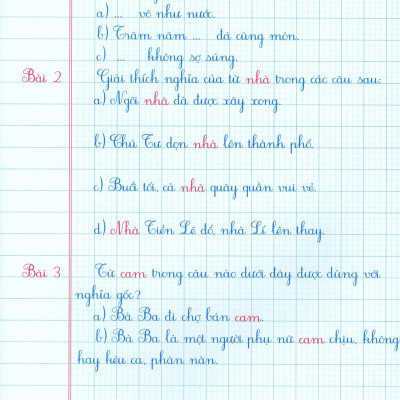 a) ... vô như nước.
b) Trăm năm ... đá cũng mòn.
c) ... không sợ súng.
Bài 2 Giải thích nghĩa của từ nhà trong các câu sau:
a) Ngôi nhà đã được xây xong.
b) Chú Tư dọn nhà lên thành phố.
c) Buổi tối, cả nhà quây quần vui vẻ.
d) Nhà Tiền Lê đổ, nhà Lí lên thay.
Bài 3 Từ cam trong câu nào dưới đây được dùng với
nghĩa gốc?
a) Bà Ba đi chợ bán cam.
b) Bà Ba là một người phụ nữ cam chịu, không
hay kêu ca, phàn nàn.